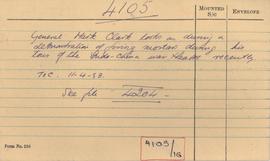 4105
MOUNTED
S/C
ENVELOPE
General Mark Clark looks on during a
demonstration of firing mortars during his
tour of the Indo-China war recently
T.C. 11-4-53.
See file 4204
4105/16
Form No. 236